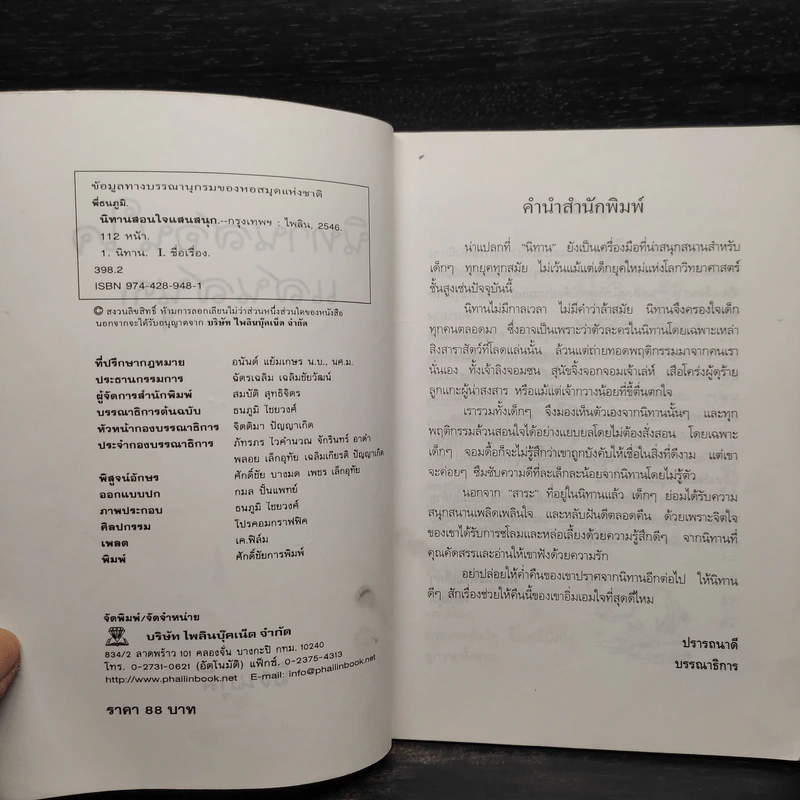 ข้อมูลทางบรรณานุกรมของหอสมุดแห่งชาติ
พี่ธนภูมิ.
นิทานสอนใจแสนสนุก.--กรุงเทพฯ : ไพลิน, 2546.
112 หน้า.
1. นิทาน. I. ชื่อเรื่อง.
398.2
ISBN 974-428-948-1
© สงวนลิขสิทธิ์ ห้ามการลอกเลียนไม่ว่าส่วนหนึ่งส่วนใดของหนังสือ
นอกจากจะได้รับอนุญาตจาก บริษัท ไพลินบุ๊คเน็ต จำกัด
ที่ปรึกษากฎหมาย อนันต์ แย้มเกษร น.บ., นศ.ม.
ประธานกรรมการ ฉัตรเฉลิม เฉลิมชัยวัฒน์
ผู้จัดการสำนักพิมพ์ สมบัติ สุทธิจิตร
บรรณาธิการต้นฉบับ ธนภูมิ ไชยวงค์
หัวหน้ากองบรรณาธิการ จิตติมา ปัญญาเกิด
ประจำกองบรรณาธิการ ภัทรภร ไวคำนวณ จักรินทร์ อาดำ
พลอย เล็กอุทัย เฉลิมเกียรติ ปัญญาเกิด
พิสูจน์อักษร ศักดิ์ชัย บางมด เพชร เล็กอุทัย
ออกแบบปก กมล ปิ้นแพทย์
ภาพประกอบ ธนภูมิ ไชยวงค์
ศิลปกรรม โปรคอมกราฟฟิค
เพลต เค.ฟิล์ม
พิมพ์ ศักดิ์ชัยการพิมพ์
จัดพิมพ์/จัดจำหน่าย
บริษัท ไพลินบุ๊คเน็ต จำกัด
834/2 ลาดพร้าว 101 คลองจั่น บางกะปิ กทม. 10240
โทร. 0-2731-0621 (อัตโนมัติ) แฟ็กซ์. 0-2375-4313
http://www.phailinbook.net E-mail: info@phailinbook.net
ราคา 88 บาท
คำนำสำนักพิมพ์
น่าแปลกที่ "นิทาน" ยังเป็นเครื่องมือที่น่าสนุกสนานสำหรับ
เด็กๆ ทุกยุคทุกสมัย ไม่เว้นแม้แต่เด็กยุคใหม่แห่งโลกวิทยาศาสตร์
ชั้นสูงเช่นปัจจุบันนี้
นิทานไม่มีกาลเวลา ไม่มีคำว่าล้าสมัย นิทานจึงครองใจเด็ก
ทุกคนตลอดมา ซึ่งอาจเป็นเพราะว่าตัวละครในนิทานโดยเฉพาะเหล่า
สิงสาราสัตว์ที่โลดแล่นนั้น ล้วนแต่ถ่ายทอดพฤติกรรมมาจากคนเรา
นั่นเอง ทั้งเจ้าลิงจอมซน สุนัขจิ้งจอกจอมเจ้าเล่ห์ เสือโคร่งผู้ดุร้าย
ลูกแกะผู้น่าสงสาร หรือแม้แต่เจ้ากวางน้อยที่ขี้ตื่นตกใจ
เรารวมทั้งเด็กๆ จึงมองเห็นตัวเองจากนิทานนั้นๆ และทุก
พฤติกรรมล้วนสอนใจได้อย่างแยบยลโดยไม่ต้องสั่งสอน โดยเฉพาะ
เด็กๆ จอมดื้อก็จะไม่รู้สึกว่าเขาถูกบังคับให้เชื่อในสิ่งที่ดีงาม แต่เขา
จะค่อยๆ ซึมซับความดีที่ละเล็กละน้อยจากนิทานโดยไม่รู้ตัว
นอกจาก "สาระ" ที่อยู่ในนิทานแล้ว เด็กๆ ย่อมได้รับความ
สนุกสนานเพลิดเพลินใจ และหลับฝันดีตลอดคืน ด้วยเพราะจิตใจ
ของเขาได้รับการชโลมและหล่อเลี้ยงด้วยความรู้สึกดีๆ จากนิทานที่
คุณคัดสรรและอ่านให้เขาฟังด้วยความรัก
อย่าปล่อยให้ค่ำคืนของเขาปราศจากนิทานอีกต่อไป ให้นิทาน
ดีๆ สักเรื่องช่วยให้คืนนี้ของเขาอิ่มเอมใจที่สุดดีไหม
ปรารถนาดี
บรรณาธิการ